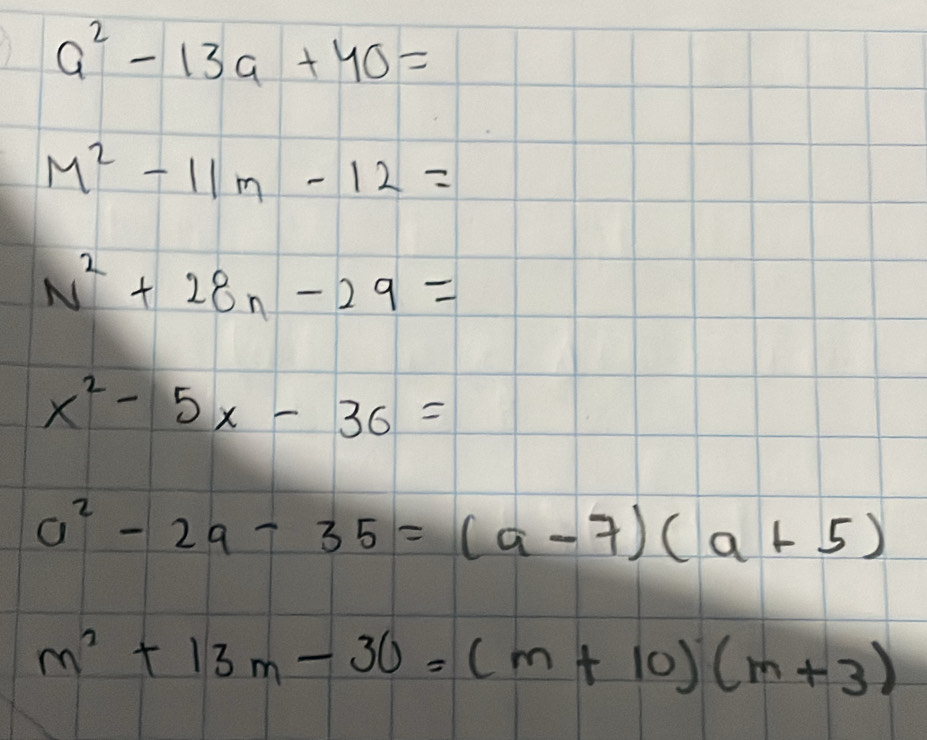 a² - 13a + 40 =
M² - 11m - 12 =
N² + 28n - 29 =
x² - 5x - 36 =
a² - 2a - 35 = (a - 7)(a + 5)
m² + 13m - 30 = (m + 10)(m + 3)